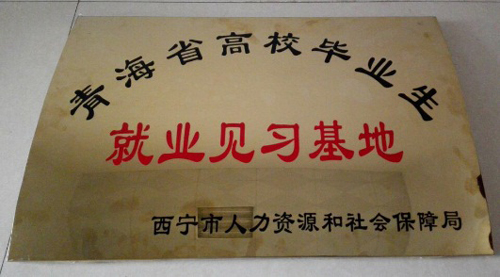 青海省高校毕业生
就业见习基地
西宁市人力资源和社会保障局